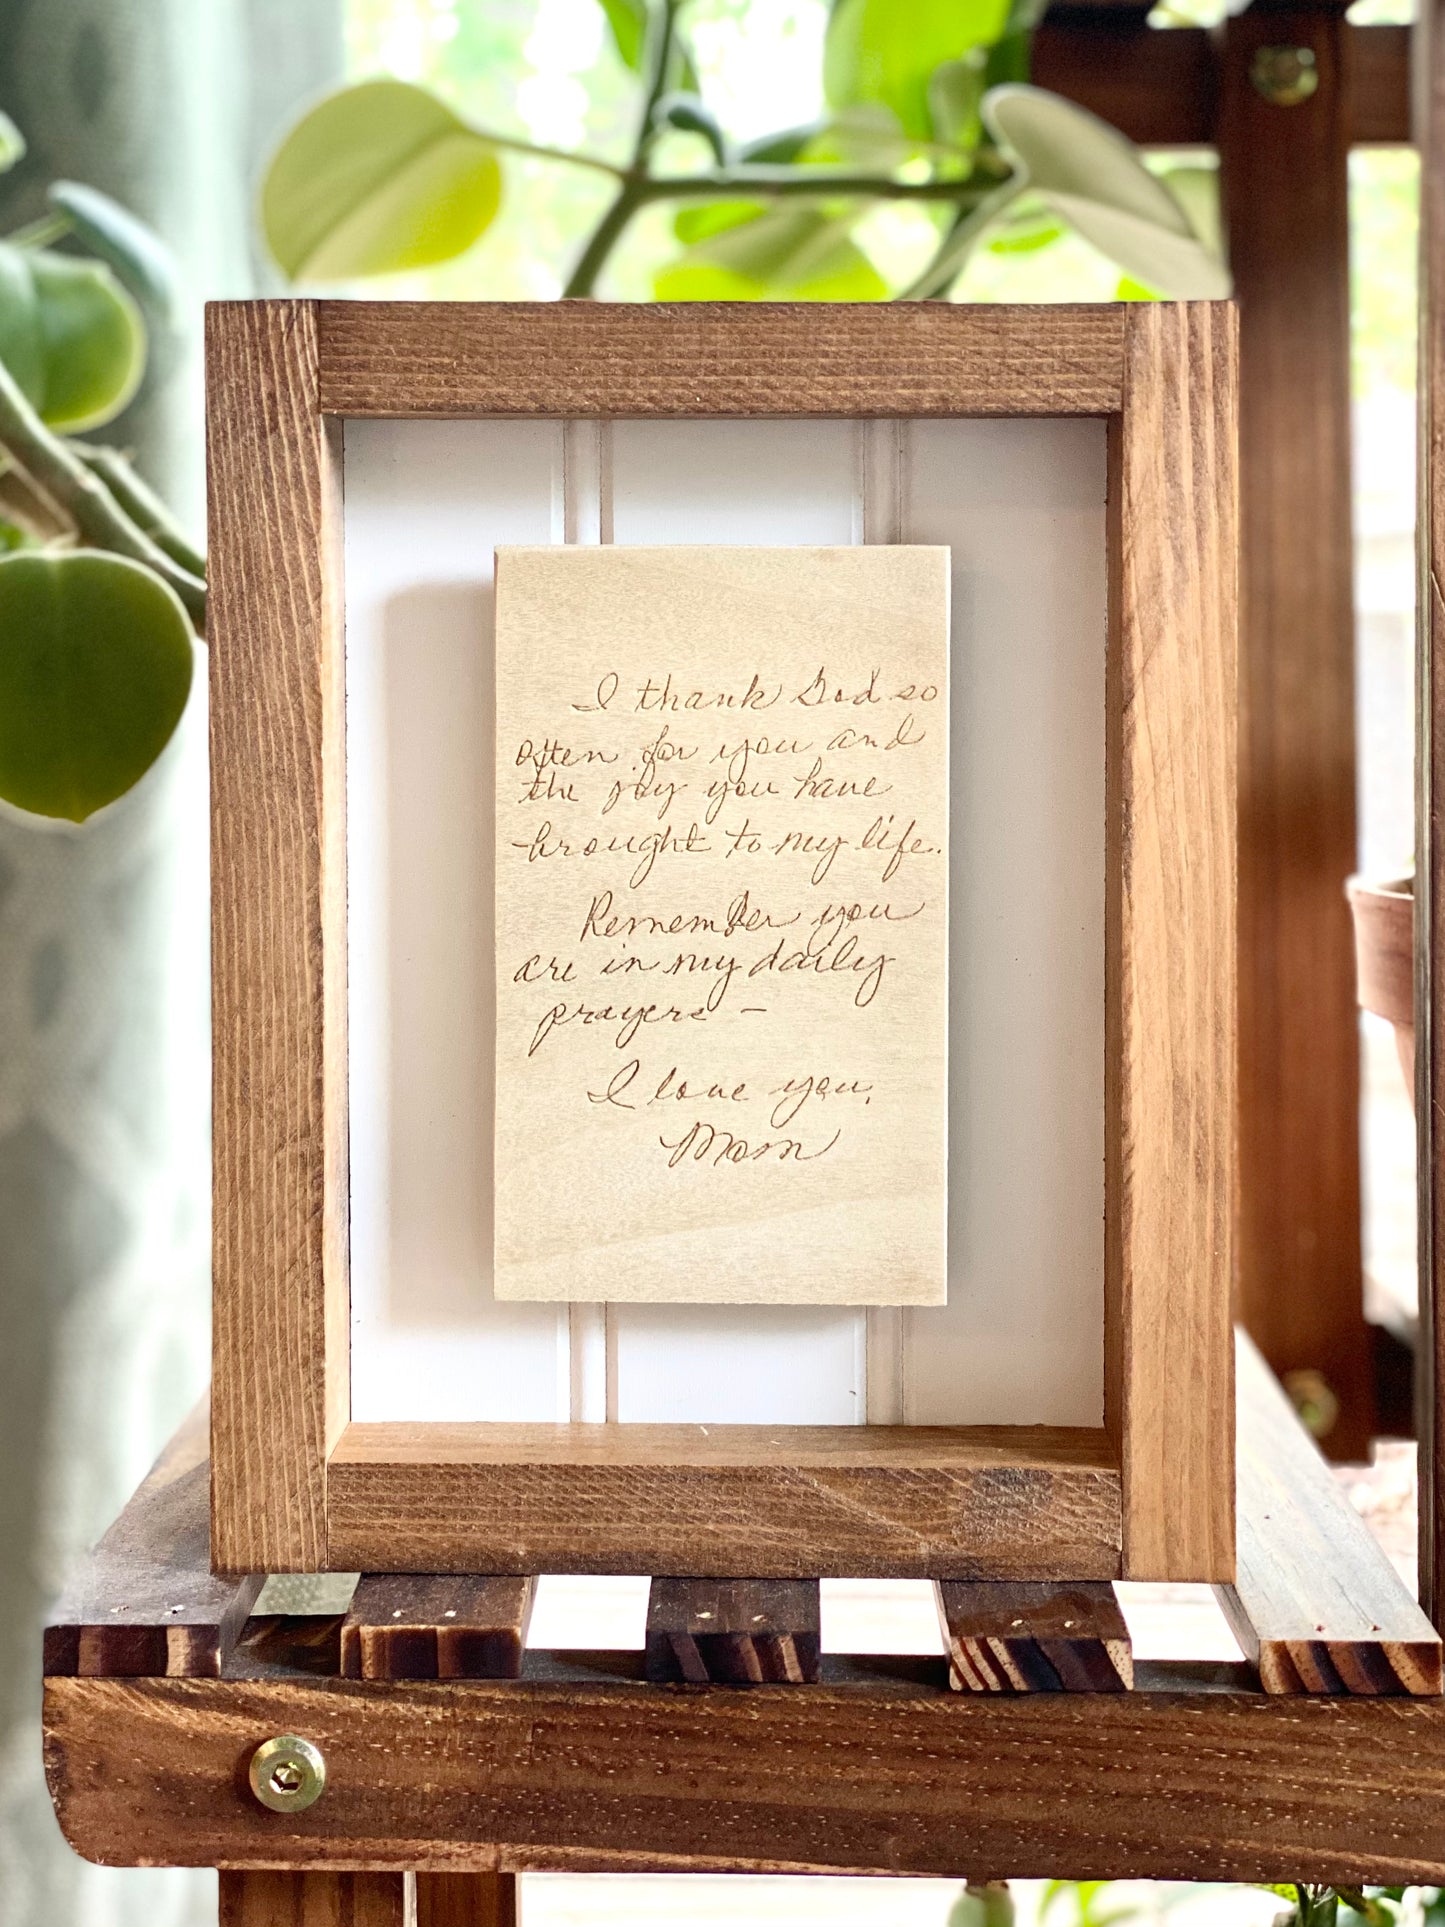 I thank God so
often for you and
the joy you have
brought to my life.
Remember you
are in my daily
prayers –
I love you,
Mom